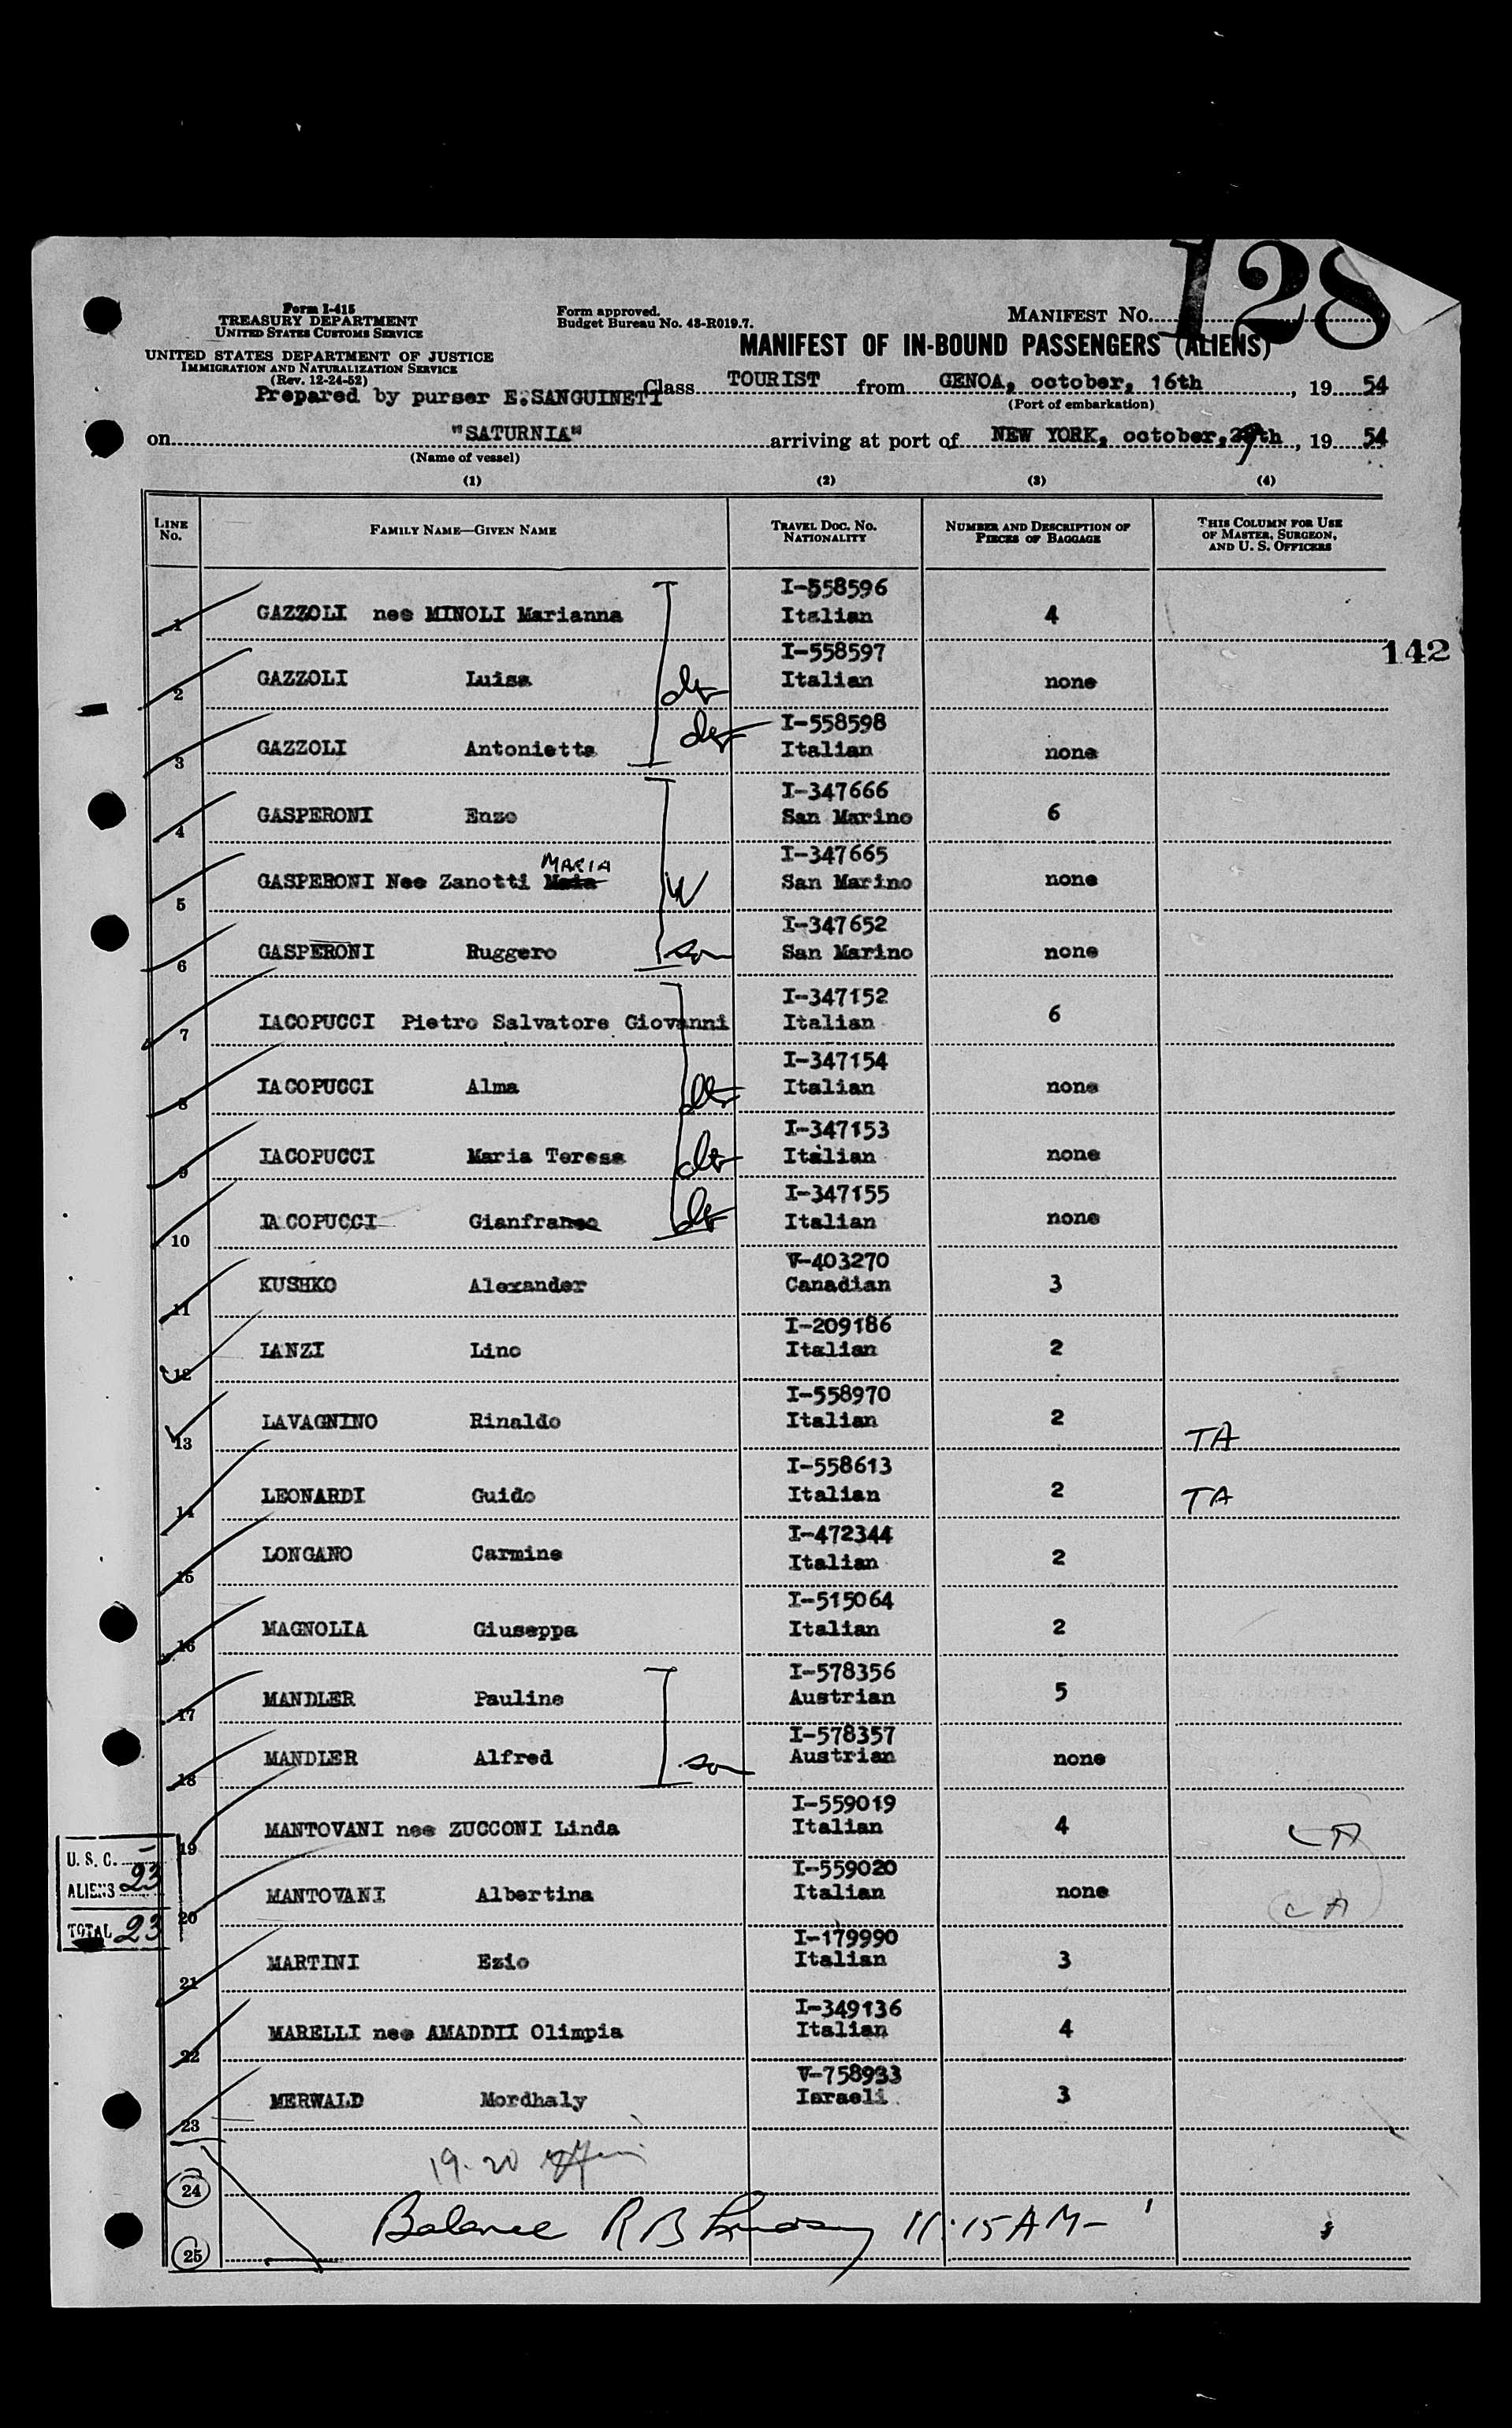 128
Form I-415
TREASURY DEPARTMENT
UNITED STATES CUSTOMS SERVICE
Form approved.
Budget Bureau No. 43-R019.7.
MANIFEST NO.
UNITED STATES DEPARTMENT OF JUSTICE
IMMIGRATION AND NATURALIZATION SERVICE
(Rev. 12-24-52)
MANIFEST OF IN-BOUND PASSENGERS (ALIENS)
Prepared by purser E.SANGUINETI Class TOURIST from GENOA, october, 16th, 19 54
(Port of embarkation)
on "SATURNIA" arriving at port of NEW YORK, october, th, 19 54
(Name of vessel)
(1) (2) (3) (4)
LINE NO. FAMILY NAME—GIVEN NAME TRAVEL DOC. NO. NATIONALITY NUMBER AND DESCRIPTION OF PIECES OF BAGGAGE THIS COLUMN FOR USE OF MASTER, SURGEON, AND U. S. OFFICERS
I-558596
1 GAZZOLI nee MINOLI Marianna Italian 4
142
I-558597
2 GAZZOLI Luisa dtr Italian none
I-558598
3 GAZZOLI Antonietta dtr Italian none
I-347666
4 GASPERONI Enzo San Marino 6
MARIA I-347665
5 GASPERONI Nee Zanotti Maia W San Marino none
I-347652
6 GASPERONI Ruggero son San Marino none
I-347152
7 IACOPUCCI Pietro Salvatore Giovanni Italian 6
I-347154
8 IACOPUCCI Alma dtr Italian none
I-347153
9 IACOPUCCI Maria Teresa dtr Italian none
I-347155
10 IACOPUCCI Gianfranco dtr Italian none
V-403270
11 KUSHKO Alexander Canadian 3
I-209186
12 LANZI Lino Italian 2
I-558970
13 LAVAGNINO Rinaldo Italian 2 TA
I-558613
14 LEONARDI Guido Italian 2 TA
I-472344
15 LONGANO Carmine Italian 2
I-515064
16 MAGNOLIA Giuseppa Italian 2
I-578356
17 MANDLER Pauline Austrian 5
I-578357
18 MANDLER Alfred son Austrian none
I-559019
19 MANTOVANI nee ZUCCONI Linda Italian 4
U. S. C. -
ALIENS 23
TOTAL 23
I-559020
20 MANTOVANI Albertina Italian none
I-179990
21 MARTINI Ezio Italian 3
I-349136
22 MARELLI nee AMADDII Olimpia Italian 4
V-758933
23 MERWALD Mordhaly Israeli 3
19-20
24
Balance R B 11:15 AM-
25